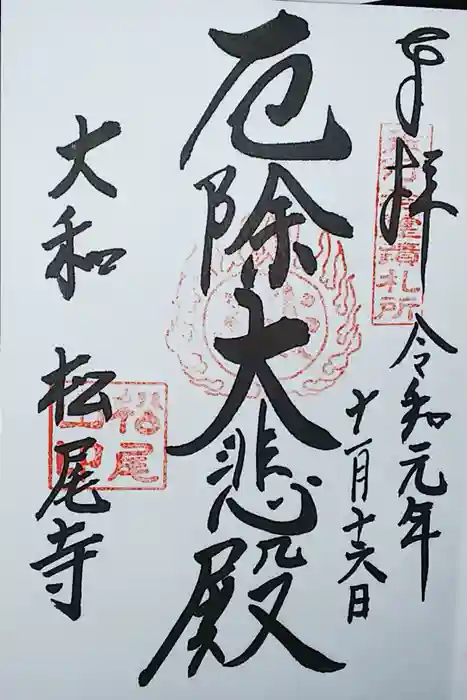 奉拝
令和元年
十一月十六日
厄除大悲殿
大和 松尾寺
松尾